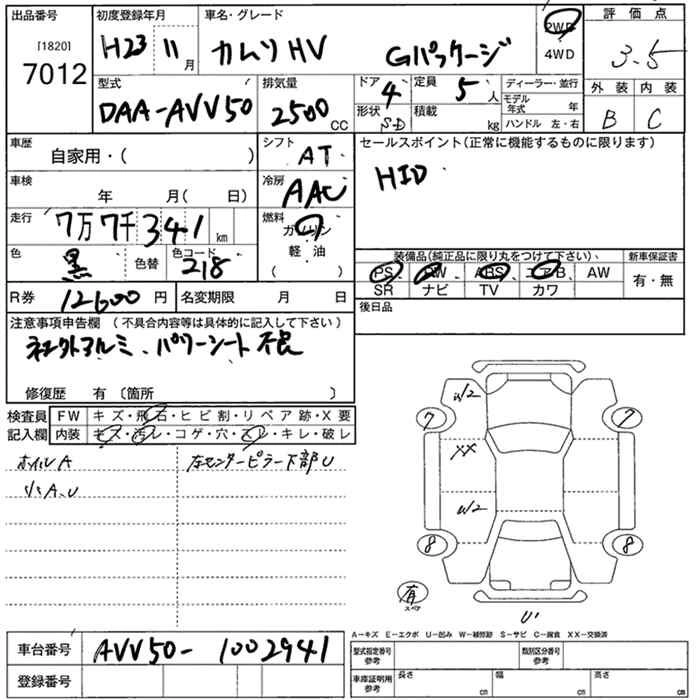 出品番号
[1820]
7012
初度登録年月
H23 11月
車名・グレード
カムリHV Gパッケージ
2WD
4WD
評価点
3.5
外装 内装
B C
型式
DAA-AVV50
排気量
2500 CC
ドア 4
形状 S・D
定員 5 人
積載 kg
ディーラー・並行
モデル年式 年
ハンドル 左・右
車歴
自家用・( )
シフト
AT
セールスポイント(正常に機能するものに限ります)
HID
車検
年 月( 日)
冷房
AAC
走行
7万7千341 km
燃料
ガソリン
軽油
( )
色
黒
色替
色コード
218
装備品(純正品に限り丸をつけて下さい)
PS PW ABS エアB AW
SR ナビ TV カワ
新車保証書
有・無
R券 12600 円
名変期限 月 日
後日品
注意事項申告欄 (不具合内容等は具体的に記入して下さい)
社外アルミ、パワーシート不良
修復歴 有 〔箇所 〕
検査員記入欄
FW キズ・飛石・ヒビ割・リペア跡・X要
内装 キズ・汚レ・コゲ・穴・スレ・キレ・破レ
ホイルA
小A.U
左センターピラー下部U
W2
7 7
XX
W2
8 8
有
スペア
U'
A-キズ E-エクボ U-凹み W-補修跡 S-サビ C-腐食 XX-交換済
車台番号
AVV50-1002941
登録番号
型式指定番号
参考
類別区分番号
参考
車庫証明用
参考
長さ cm
幅 cm
高さ cm